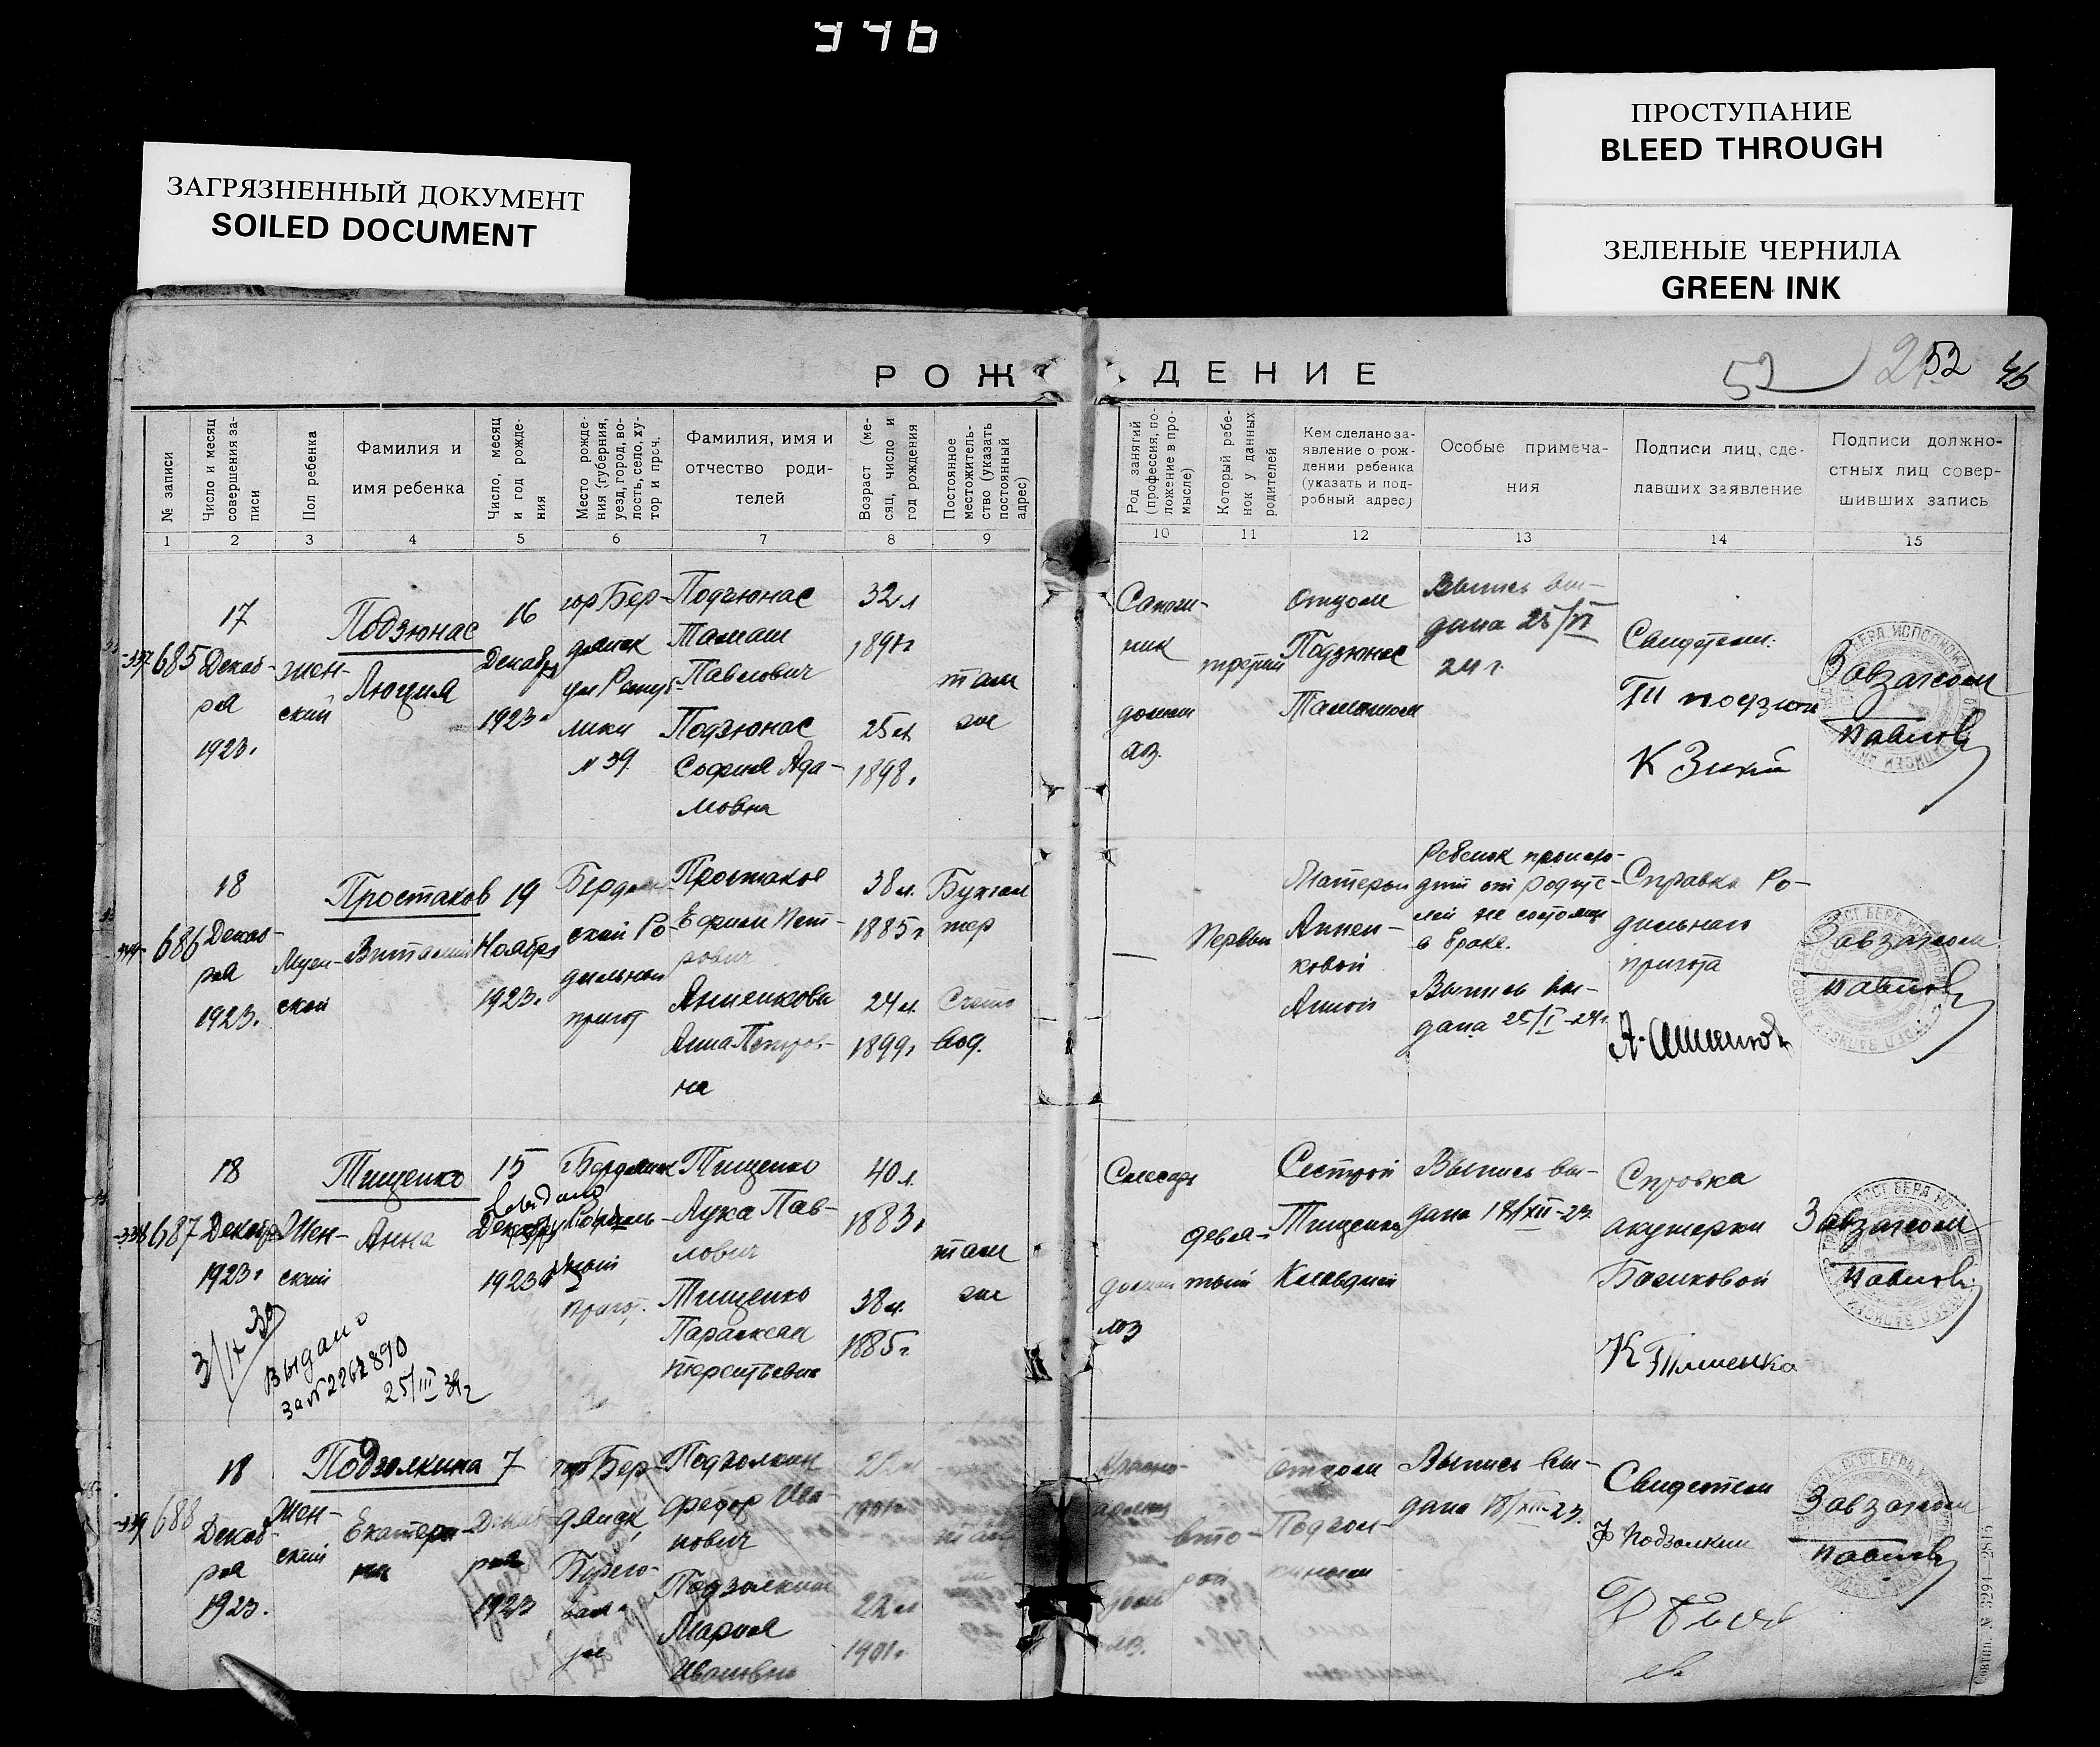 346
ПРОСТУПАНИЕ
BLEED THROUGH
ЗАГРЯЗНЕННЫЙ ДОКУМЕНТ
SOILED DOCUMENT
ЗЕЛЕНЫЕ ЧЕРНИЛА
GREEN INK
РОЖДЕНИЕ
52
52
№ записи
Число и месяц
совершения за-
писи
Пол ребенка
Фамилия и
имя ребенка
Число, месяц
и год рожде-
ния
Место рожде-
ния (губерния,
уезд, город, во-
лость, село, ху-
тор и проч.
Фамилия, имя и
отчество роди-
телей
Возраст (ме-
сяц, число и
год рождения
Постоянное
местожитель-
ство (указать
постоянный
адрес)
Род занятий
(профессия, по-
ложение в про-
мысле)
Который ребе-
нок у данных
родителей
Кем сделано за-
явление о рож-
дении ребенка
(указать и под-
робный адрес)
Особые примеча-
ния
Подписи лиц, сде-
лавших заявление
Подписи должно-
стных лиц совер-
шивших запись
1 2 3 4 5 6 7 8 9 10 11 12 13 14 15
685
17
Декаб-
ря
1923г
жен-
ский
Подзюнас
Люция
16
Декабря
1923г
гор Бер-
дянск
ул Респуб-
лики
№ 39
Подзюнас
Тамаш
Павлович
Подзюнас
София Ада-
мовна
32 л
1891г
25 л.
1898г
там
же
Сапож-
ник
домаш
хоз.
третий
Отцом
Подзюнас
Тамашом
Выпись вы-
дана
24 г.
Свидетели:
Завзагсом
Павлов
686
18
Декаб-
ря
1923.
Муж-
ской
Простаков
Виталий
19
Ноября
1923.
Бердян-
ский Ро-
дильный
приют
Простаков
Ефрем Пет-
рович
Анненкова
Анна Петров-
на
38 л.
1885г
24 л.
1899г
Бухгал
тер
Счето
вод.
Первый
Матерью
Аннен-
ковой
Анной
Ребенок происхо-
дит от родите-
лей не состоящих
в браке.
Выпись вы-
дана 25/I-24г
Справка Ро-
дильнаго
приюта
Завзагсом
Павлов
687
18
Декабря
1923г
Жен-
ский
Тищенко
Анна
15
Декабря
1923г
г.Бердянск
Родиль-
ный
приют.
Тищенко
Лука Пав-
лович
Тищенко
Параскева
Терентьевна
40 л.
1883г
38 л.
1885г
там
же
Слесарь
домаш
хоз
девя-
тый
Сестрой
Тищенко
Клавдией
Выпись вы-
дана 18/XII-23.
Справка
акушерки
Базиковой
К Тищенко
Завзагсом
Павлов
Выдано
25/III 39г
688
18
Декаб-
ря
1923.
Жен-
ский
Подзолкина
Екатери-
на
7
Декаб
ря
1923
гор Бер-
дянск
Подзолкин
Федор Ива-
нович
Подзолкина
Мария
Ивановна
22 л
1901г
вто-
рой
Отцом
Подзол-
киным
Выпись вы-
дана 18/XII-23.
Свидетели
Ф Подзолкин
Завзагсом
Павлов